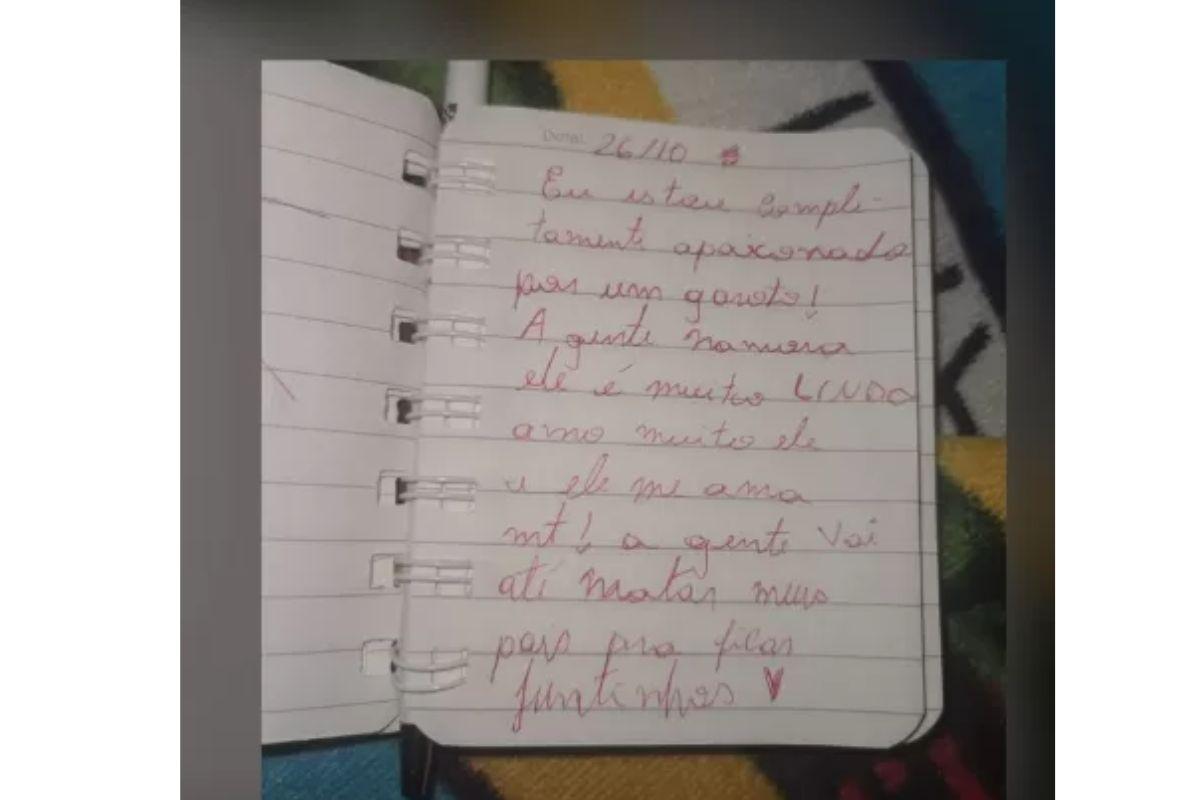 Data: 26/10
Eu estou comple-
tamente apaixonado
por um garoto!
A gente namora
ele é muito LINDO
amo muito ele
e ele me ama
mt! a gente vai
até matar meus
pais pra ficar
juntinhos ♥